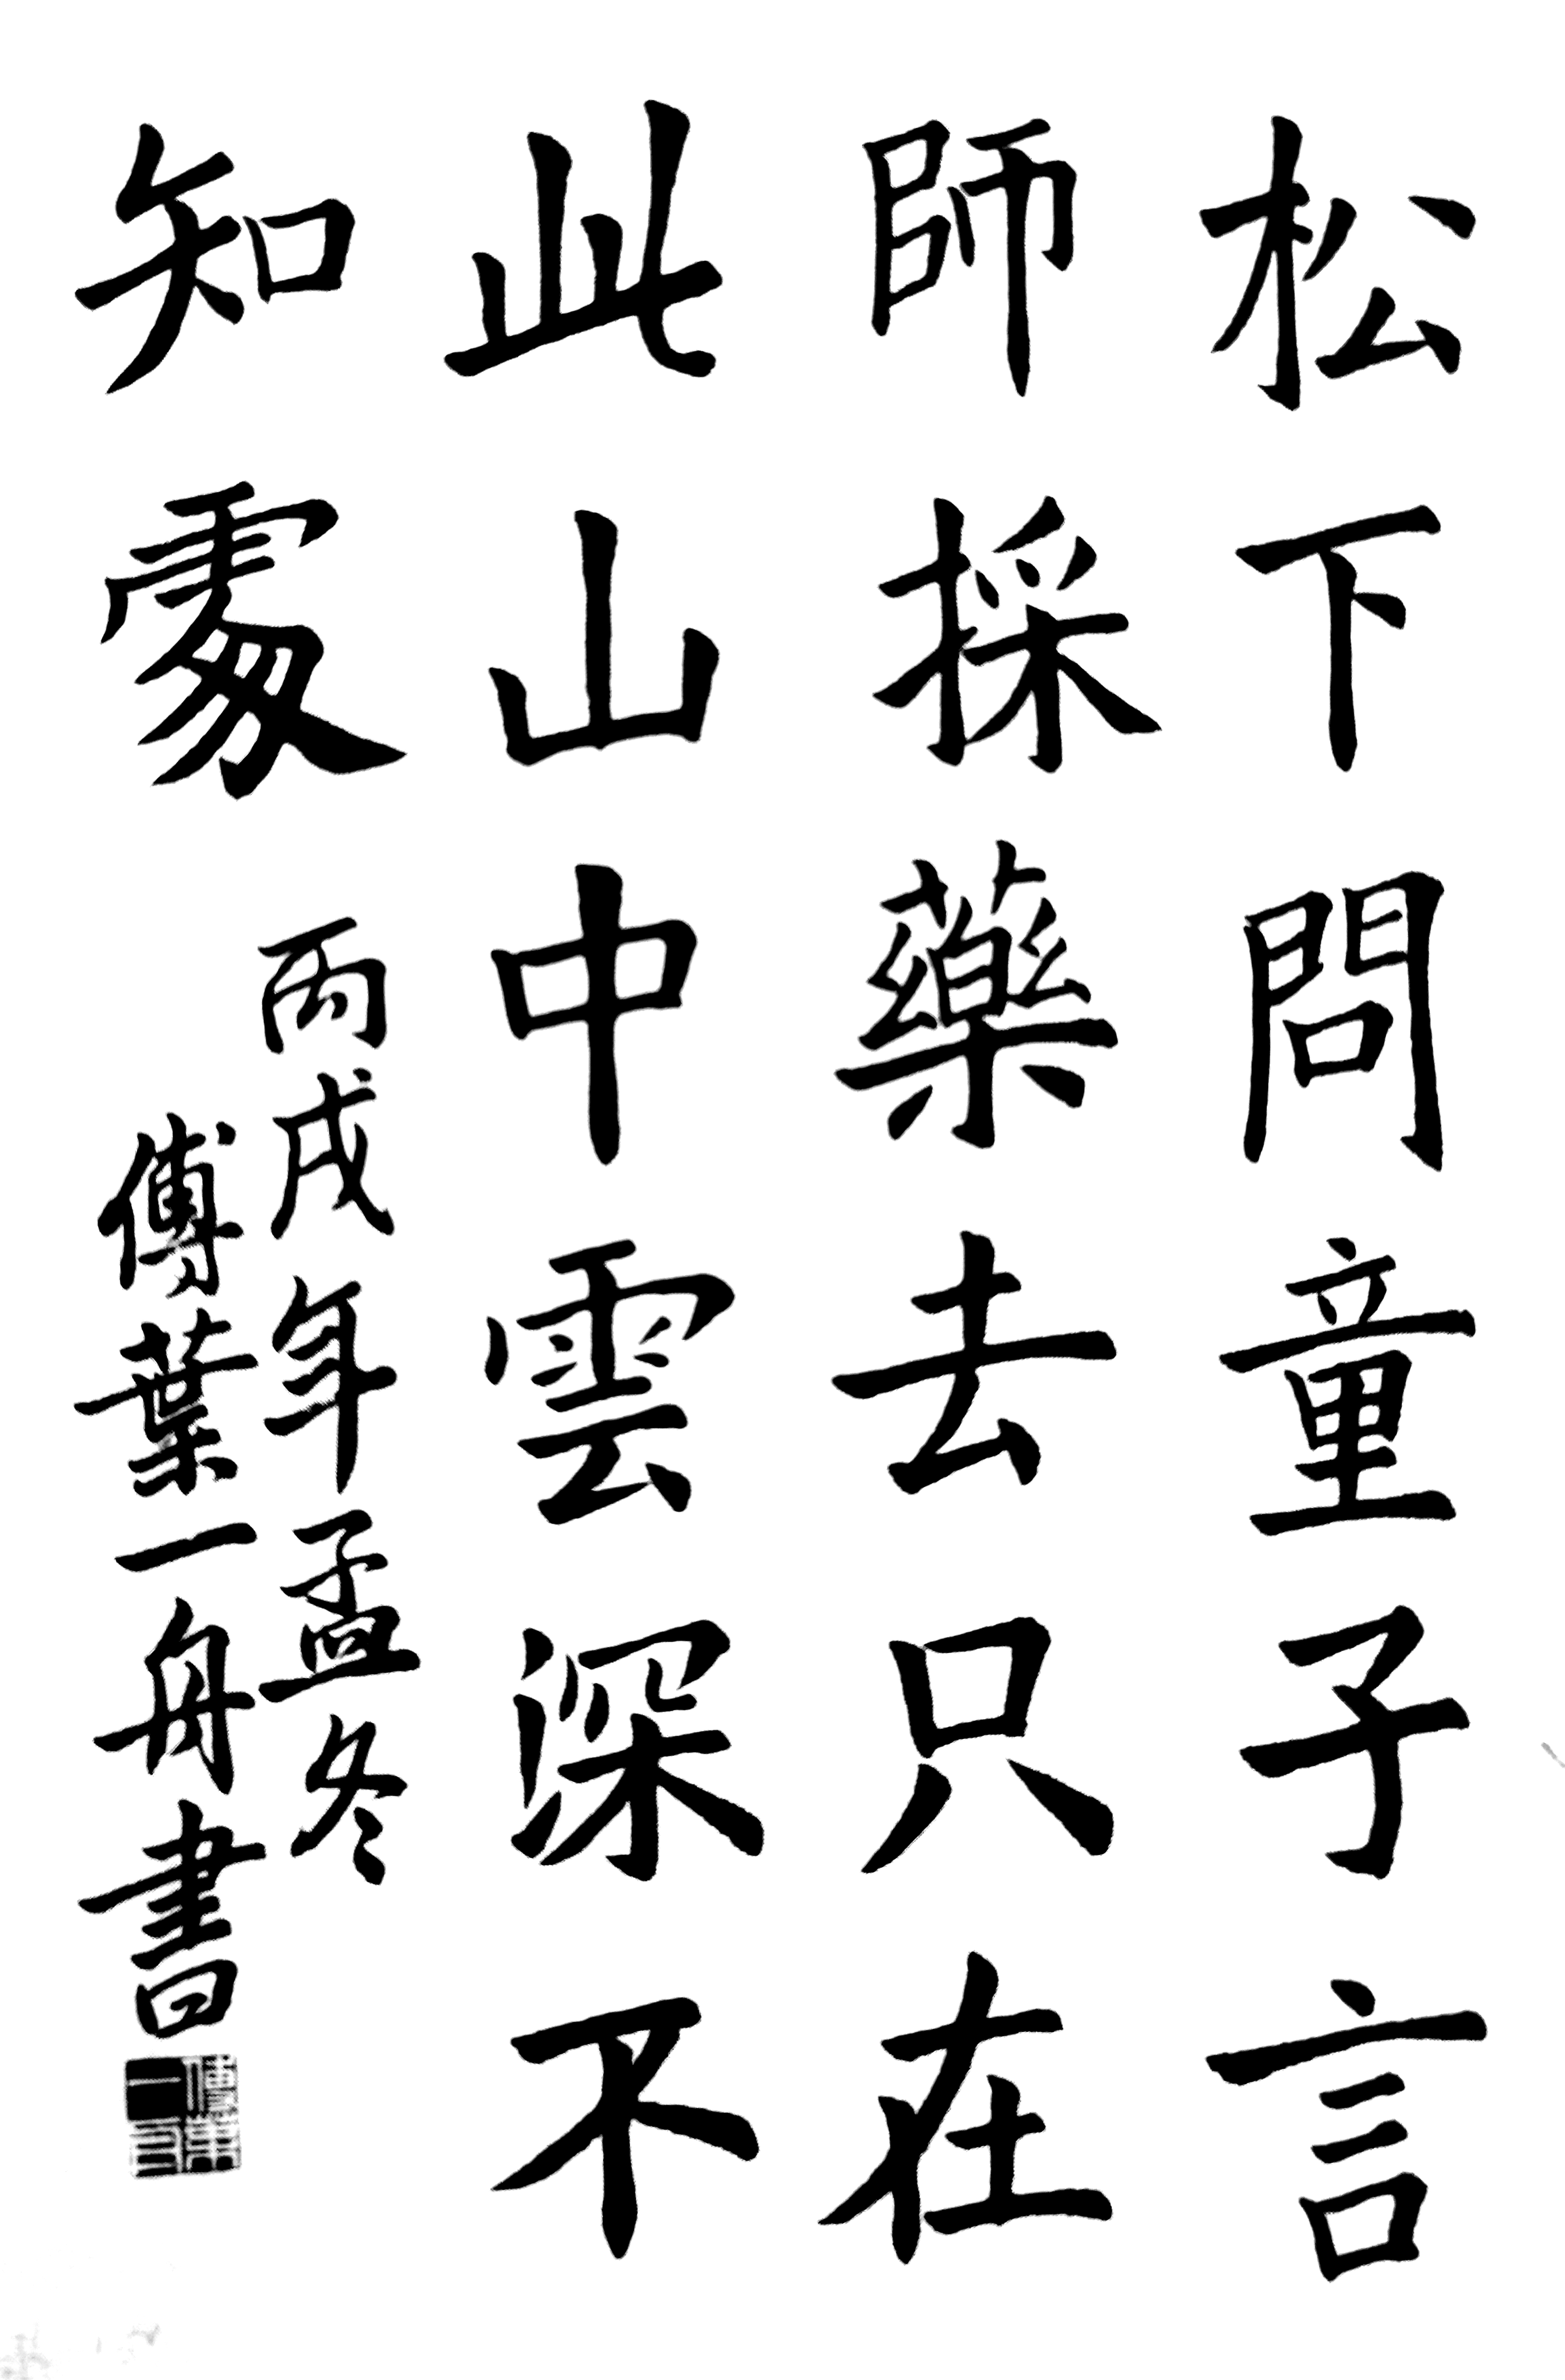 松下問童子言
師採藥去只在
此山中雲深不
知處
丙戌年孟冬
傅葉一舟書